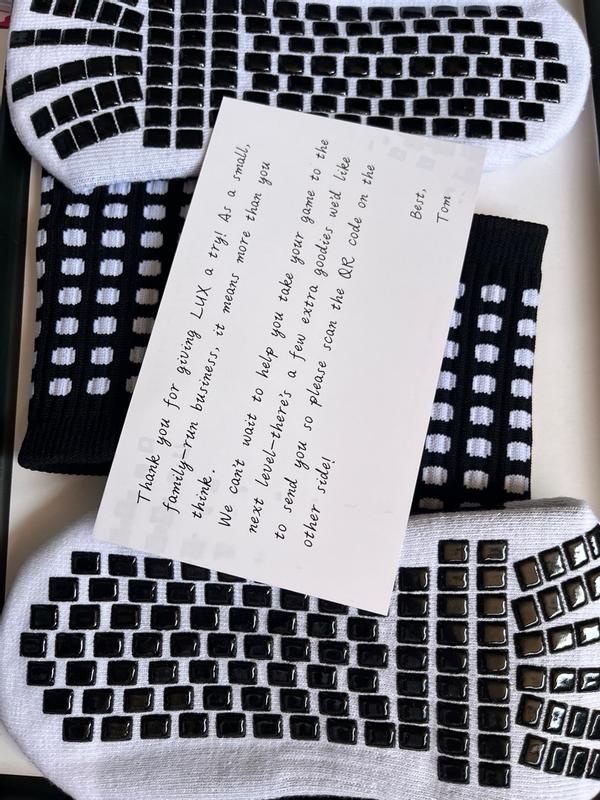 Thank you for giving LUX a try! As a small,
family-run business, it means more than you
think.
We can't wait to help you take your game to the
next level—there's a few extra goodies we'd like
to send you so please scan the QR code on the
other side!
Best,
Tom